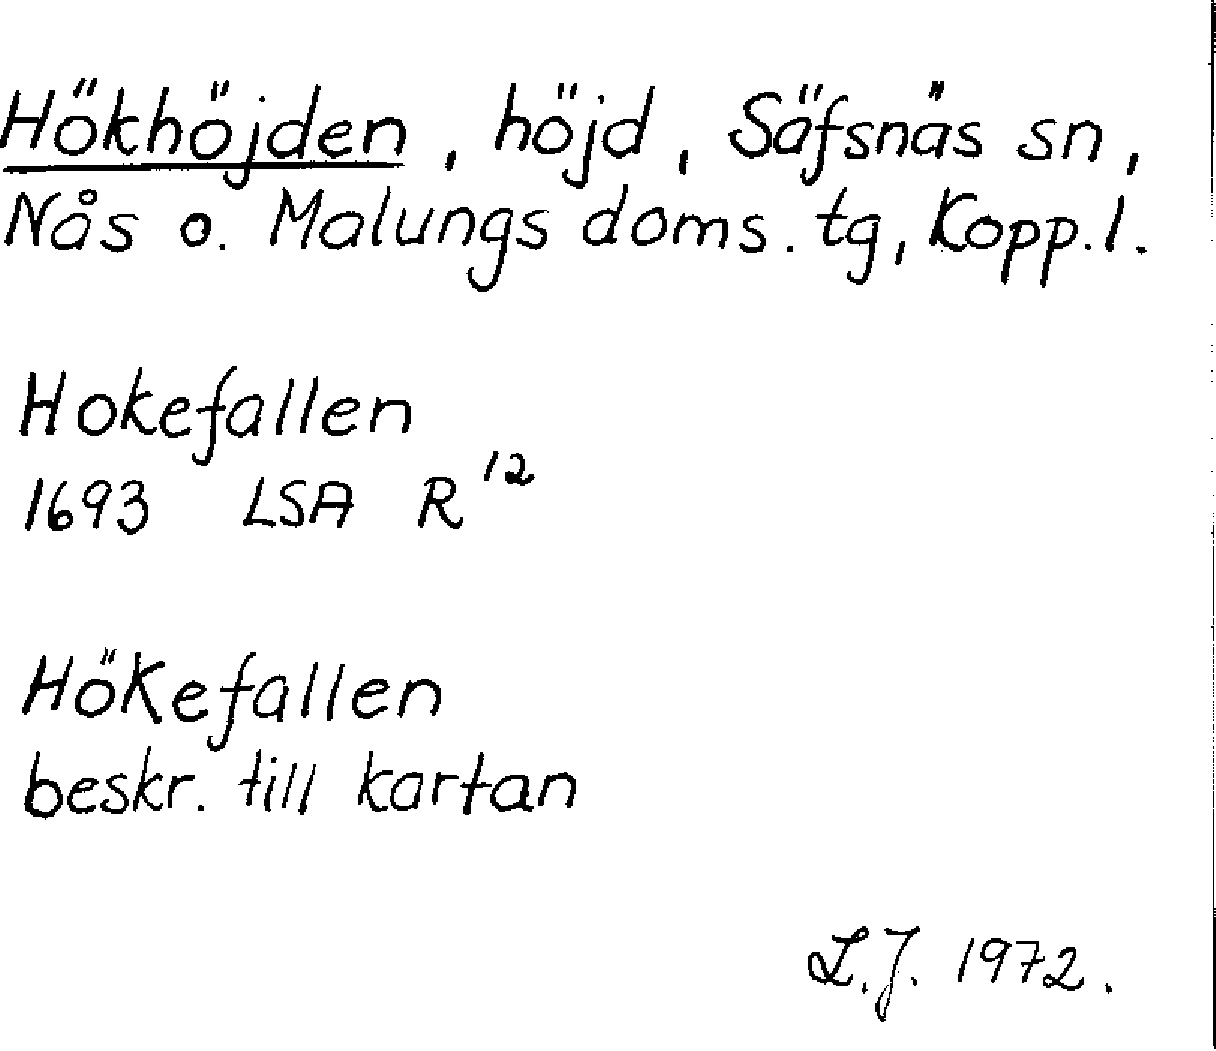 Hökhöjden, höjd, Säfsnäs sn,
Nås o. Malungs doms. tg, Kopp. l.
Hokefallen
1693 LSA R 12
Hökefallen
beskr. till kartan
L.J. 1972.